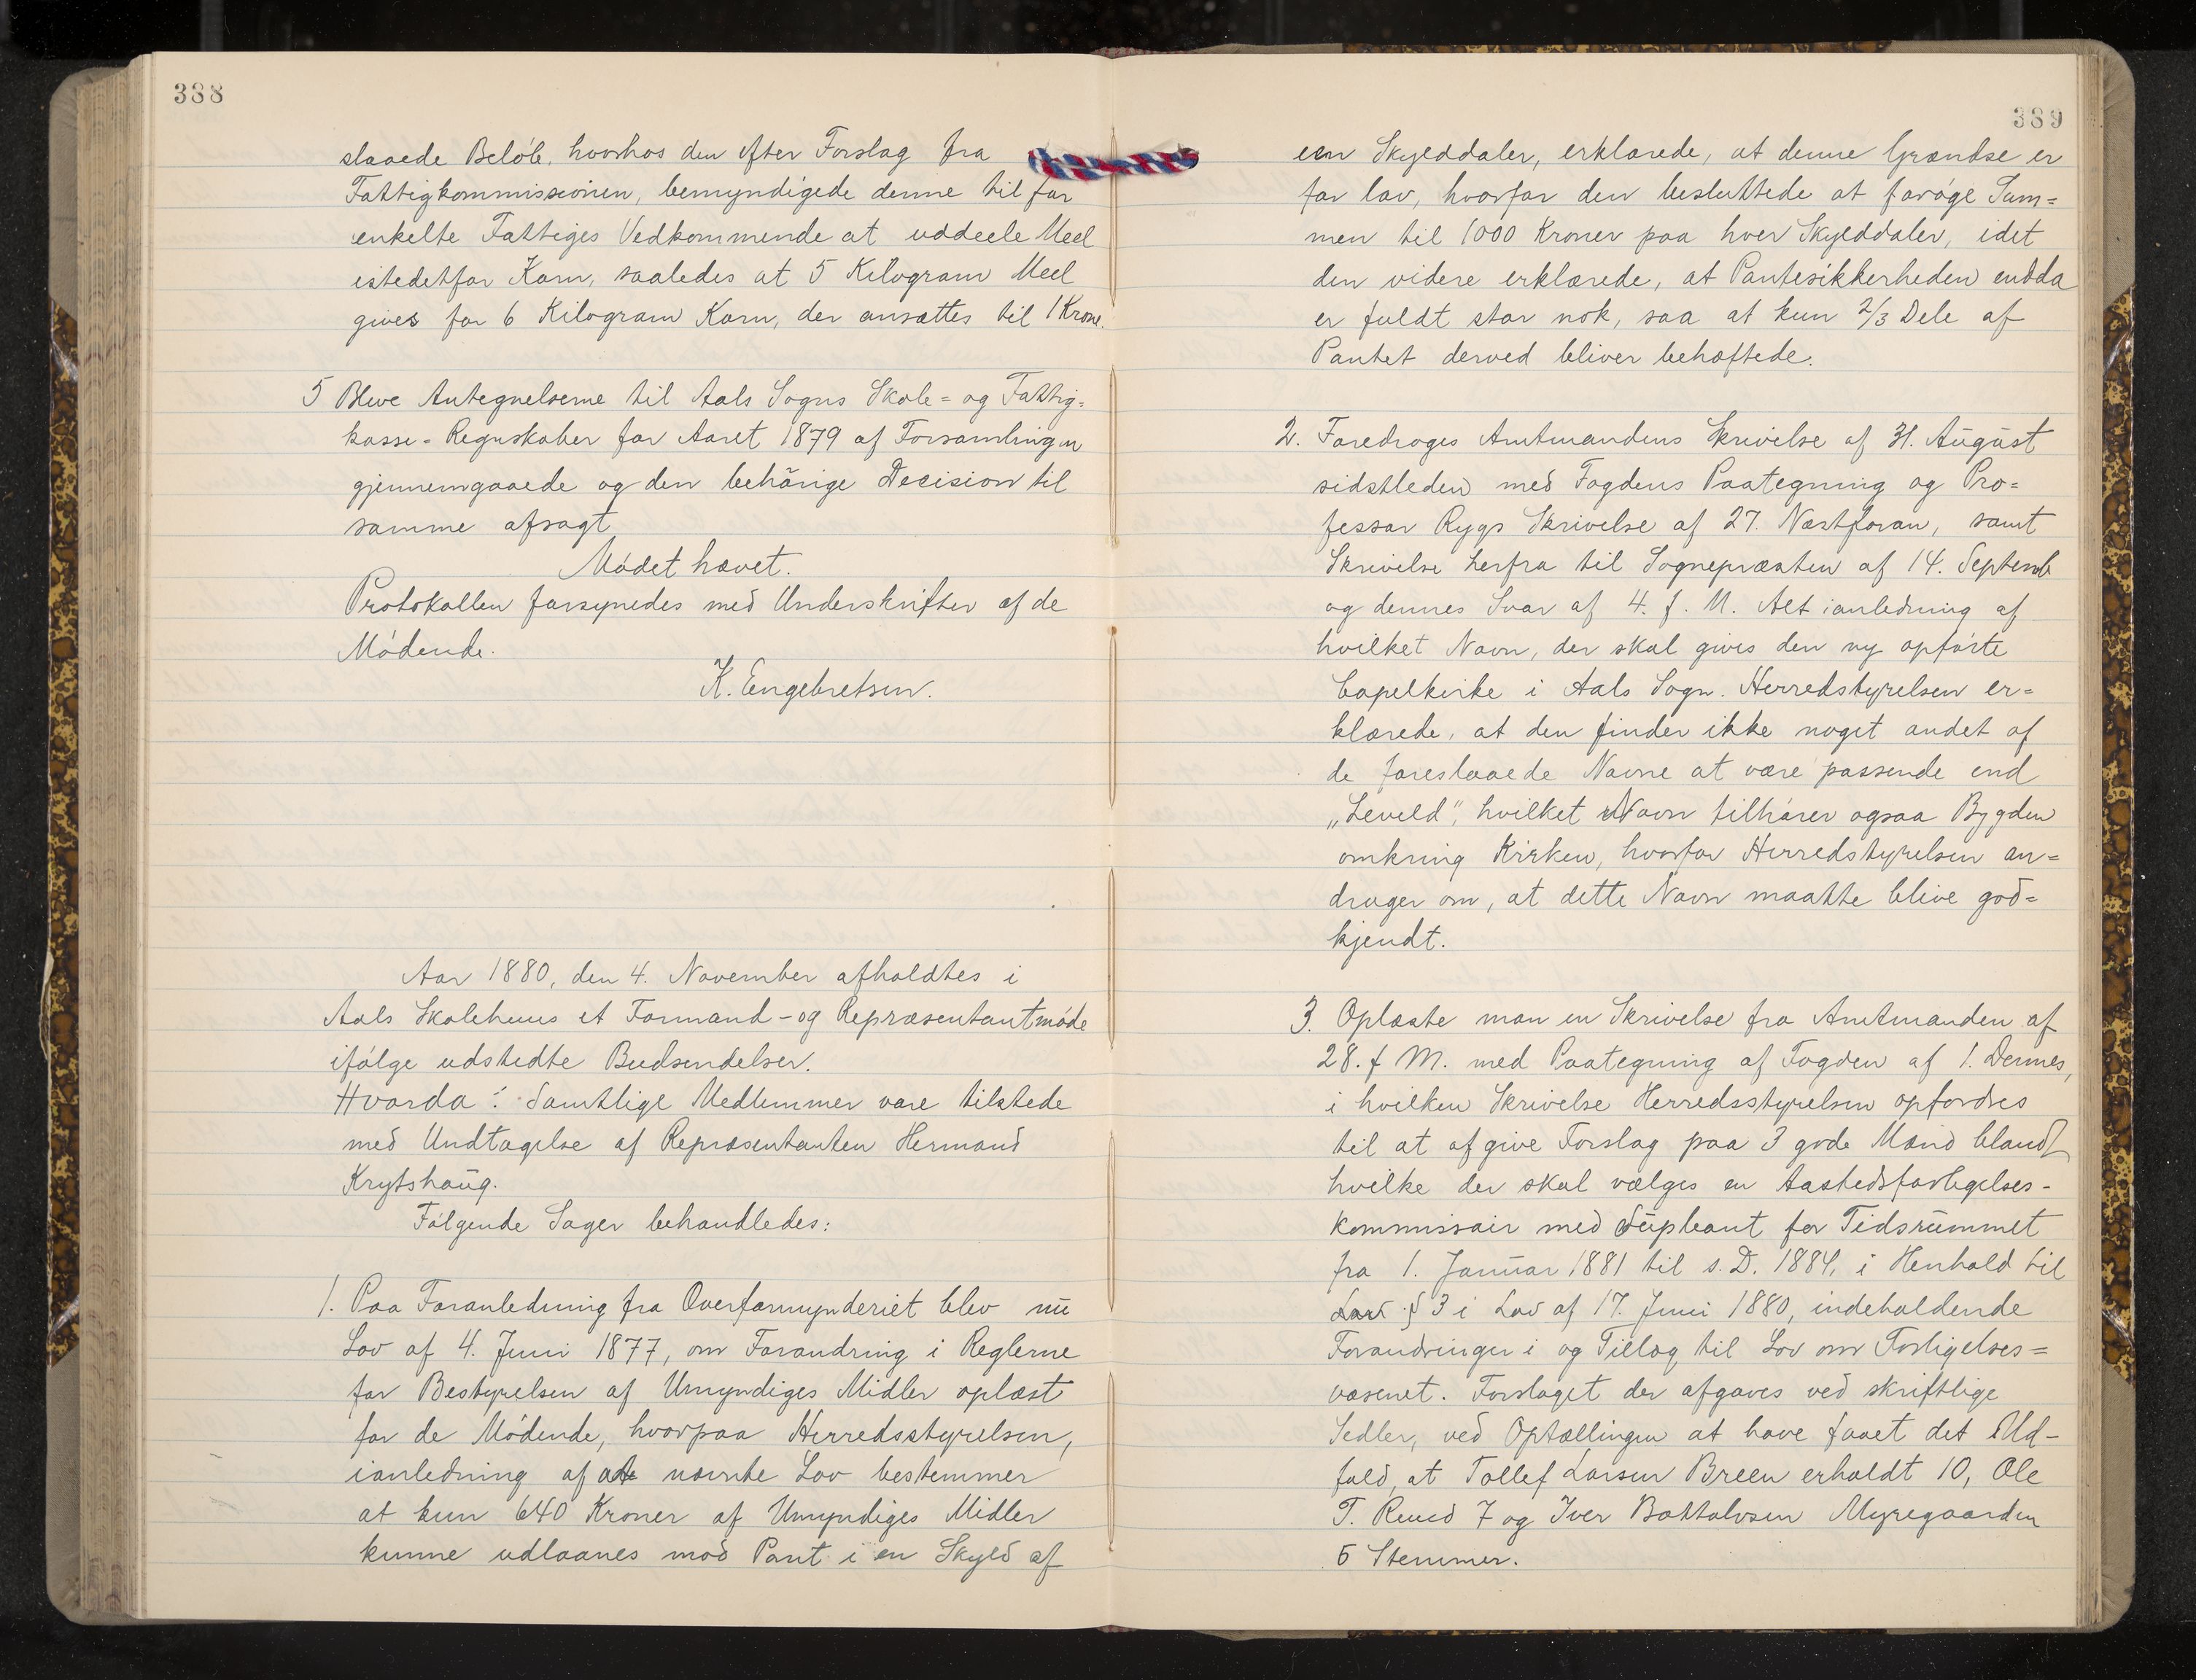 388
slaaede Beløb, hvorhos den efter Forslag fra
Fattigkommissionen, bemyndigede denne til for
enkelte Fattiges Vedkommende at uddeele Meel
istedetfor Korn, saaledes at 5 Kilogram Meel
gives for 6 Kilogram Korn, der ansættes til 1 Krone.
5 Bleve Antegnelserne til Aals Sogns Skole= og Fattig=
kasse=Regnskaber for Aaret 1879 af Forsamlingen
gjennemgaaede og den behörige Decision til
samme afsagt
Mødet hævet.
Protokollen forsynedes med Underskrifter af de
Mødende.
K. Engebretsen.
Aar 1880, den 4. November afholdtes i
Aals Skolehuus et Formand- og Repræsentantmøde
ifølge udstedte Budsendelser.
Hvorda: Samtlige Medlemmer vare tilstede
med Undtagelse af Repræsentanten Hermand
Krytshaug.
Følgende Sager behandledes:
1. Paa Foranledning fra Overformynderiet blev nu
Lov af 4. Juni 1877, om Forandring i Reglerne
for Bestyrelsen af Umyndiges Midler oplæst
for de Mødende, hvorpaa Herredsstyrelsen,
ianledning af at nævnte Lov bestemmer
at kun 640 Kroner af Umyndiges Midler
kunne udlaanes mod Pant i en Skyld af
389
een Skylddaler, erklærede, at denne Grændse er
for lav, hvorfor den besluttede at forøge Sum=
men til 1000 Kroner paa hver Skylddaler, idet
den videre erklærede, at Pantesikkerheden endda
er fuldt stor nok, saa at kun 2/3 Dele af
Pantet derved bliver behæftede.
2. Foredroges Amtmandens Skrivelse af 31. August
sidstleden med Fogdens Paategning og Pro=
fessor Rygs Skrivelse af 27. Næstforan, samt
Skrivelse herfra til Sognepræsten af 14. Septemb
og dennes Svar af 4. f. M. Alt ianledning af
hvilket Navn, der skal gives den ny opførte
Capelkirke i Aals Sogn. Herredstyrelsen er=
klærede, at den finder ikke noget andet af
de foreslaaede Navne at være passende end
„Leveld", hvilket Navn tilhører ogsaa Bygden
omkring Kirken, hvorfor Herredstyrelsen an=
drager om, at dette Navn maatte blive god=
kjendt.
3. Oplæste man en Skrivelse fra Amtmanden af
28. f M. med Paategning af Fogden af 1. Dennes,
i hvilken Skrivelse Herredsstyrelsen opfordres
til at afgive Forslag paa 3 gode Mænd blandt
hvilke der skal vælges en Aastedsforligelses-
kommissair med Supleant for Tidsrummet
fra 1. Januar 1881 til s. D. 1884, i Henhold til
Lov § 3 i Lov af 17. Juni 1880, indeholdende
Forandringer i og Tillæg til Lov om Forligelses=
væsenet. Forslaget der afgaves ved skriftlige
Sedler, ved Optællingen at have faaet det Ud-
fald, at Tollef Larsen Breen erholdt 10, Ole
T. Ruud 7 og Iver Bottolvsen Myregaarden
5 Stemmer.